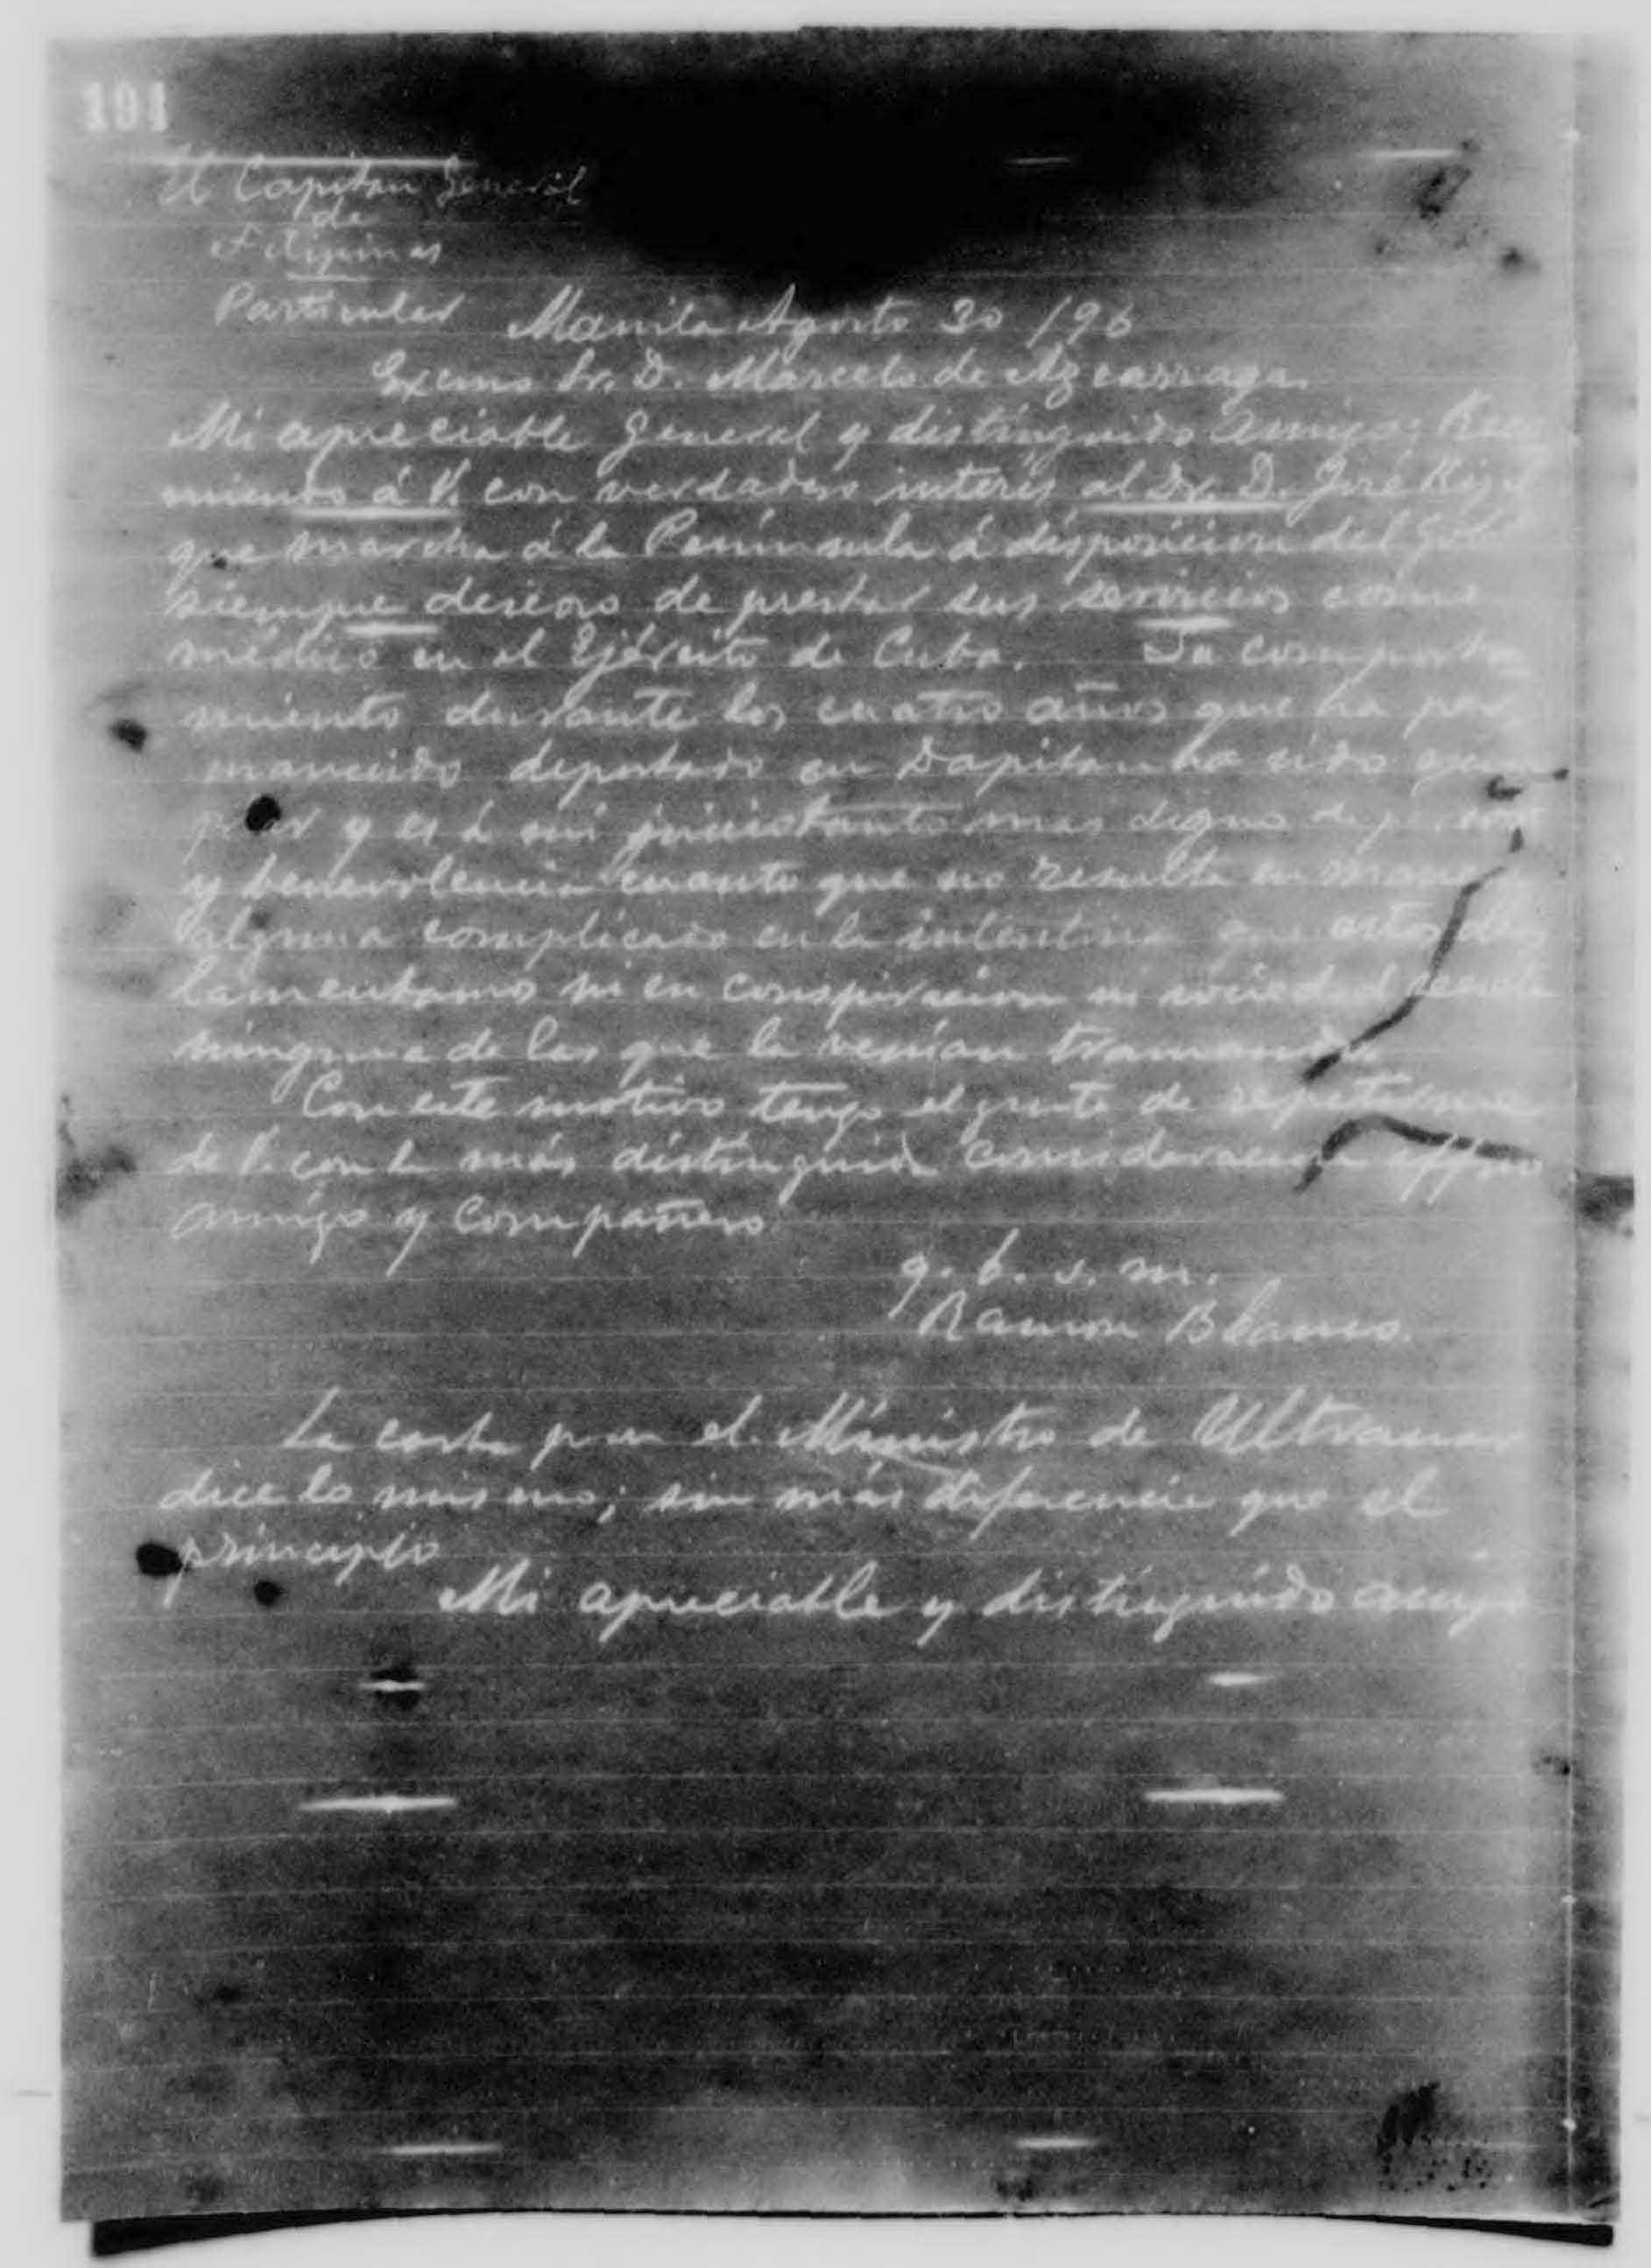 194
El Capitan General
de
Filipinas
Particular Manila Agosto 30 /96
Excmo Sr. D. Marcelo de Azcarraga.
Mi apreciable General y distinguido amigo: Reco
miendo á V. con verdadero interés al Dr. D. José Rizal
que marcha á la Península á disposicion del Gob
siempre deseoso de prestar sus servicios como
médico en el Ejército de Cuba. Su comporta
miento durante los cuatro años que ha per
manecido deportado en Dapitan ha sido ejem
plar y es á mi juicio tanto mas digno de perdon
y benevolencia cuanto que no resulta en manera
alguna complicado en la intentona que estos dias
lamentamos ni en conspiracion ni sociedad secreta
ninguna de las que la venían tramando.
Con este motivo tengo el gusto de repetirme
de V. con la más distinguida consideracion affmo
amigo y compañero
q. b. s. m.
Ramon Blanco.
La carta para el Ministro de Ultramar
dice lo mismo; sin más diferencia que el
principio
Mi apreciable y distinguido amigo